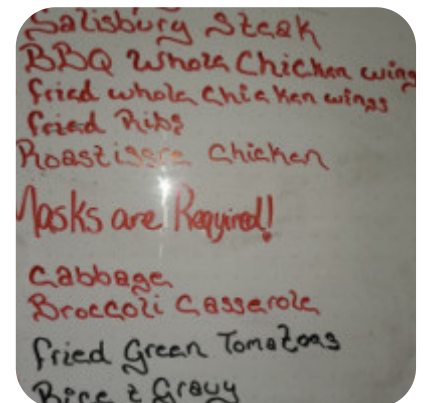 Salisbury Steak
BBQ Whole Chicken wing
fried whole Chicken wings
fried Ribs
Roastissre Chicken
Masks are Required!
Cabbage
Broccoli Casserole
fried Green Tomatoes
Rice & Gravy